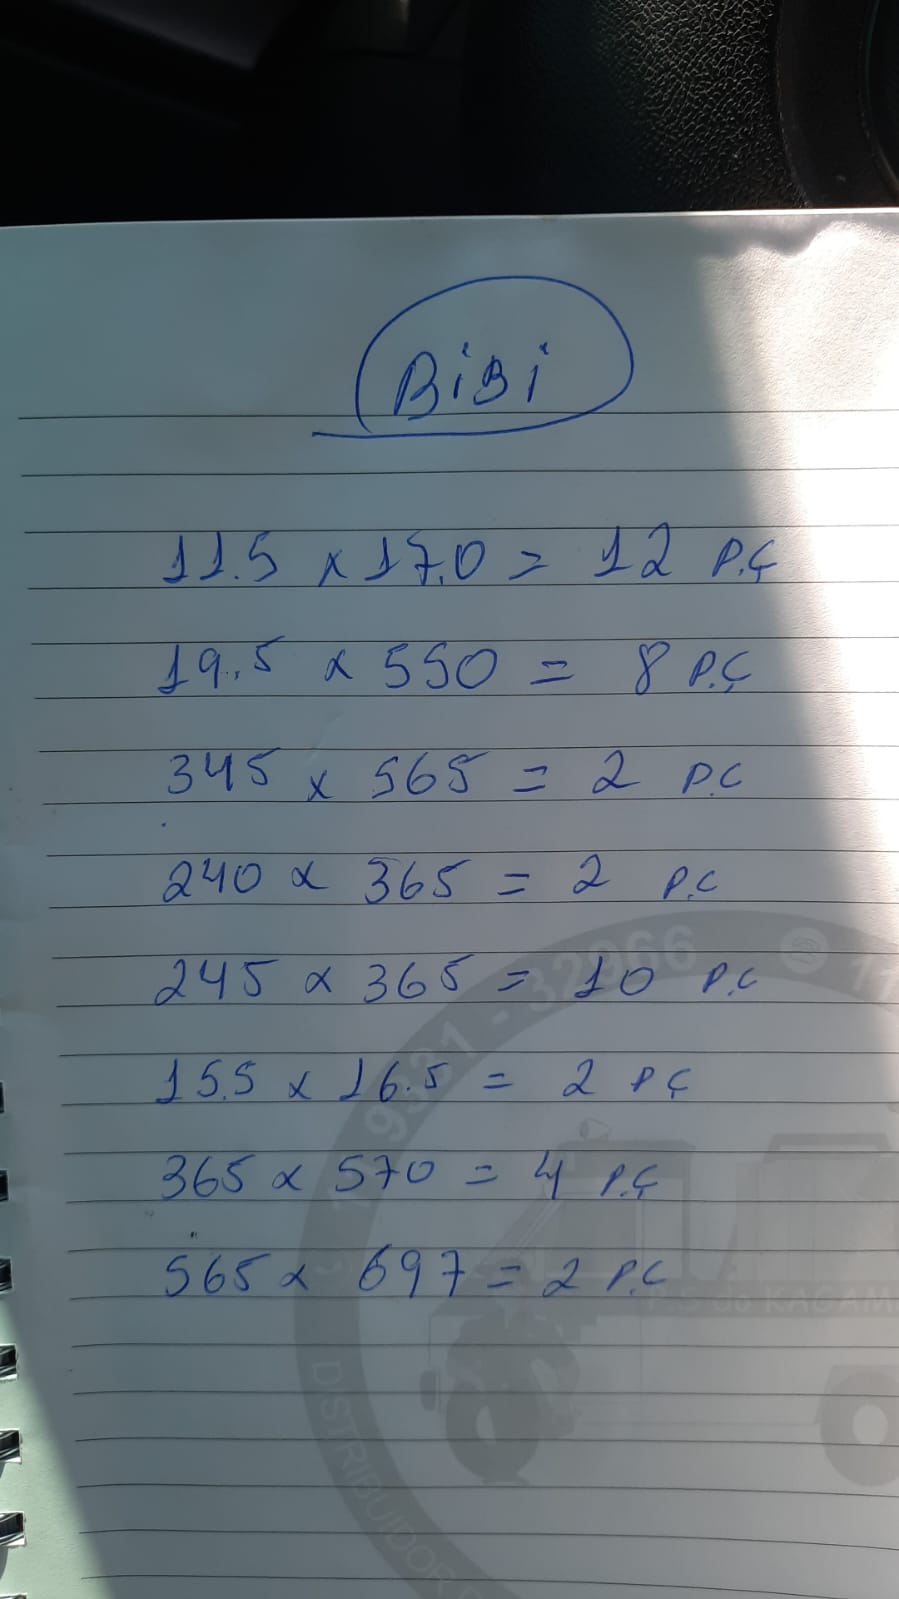 BiBi
11.5 x 17.0 = 12 P.Ç
19.5 x 550 = 8 P.Ç
345 x 565 = 2 P.C
240 x 365 = 2 P.C
245 x 365 = 10 P.C
15.5 x 16.5 = 2 PÇ
365 x 570 = 4 P.Ç
565 x 697 = 2 P.C
9331-32966 11
P.S do KAGAM
DISTRIBUIDOR